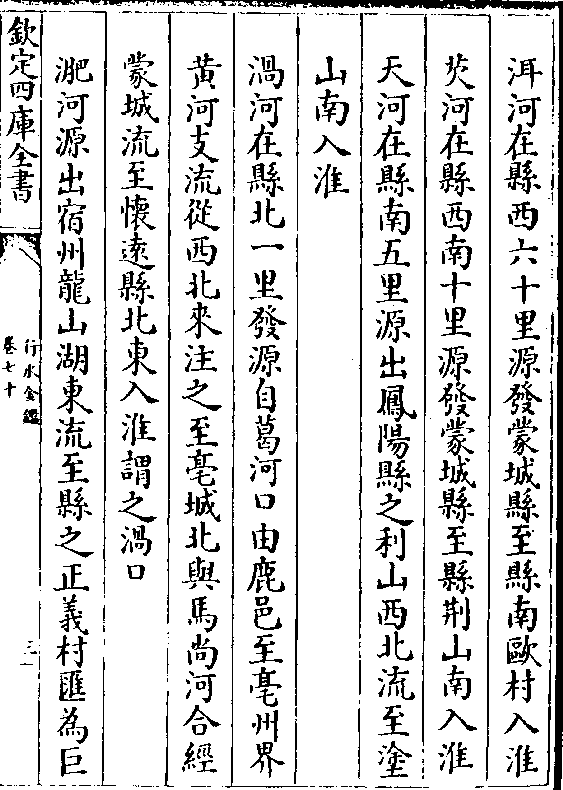 洱河在縣西六十里源發蒙城縣至縣南歐村入淮
芡河在縣西南十里源發蒙城縣至縣荆山南入淮
天河在縣南五里源出鳳陽縣之利山西北流至塗
山南入淮
渦河在縣北一里發源自葛河口由鹿邑至亳州界
黄河支流從西北來注之至亳城北與馬尚河合經
蒙城流至懷逺縣北東入淮謂之渦口
淝河源出宿州龍山湖東流至縣之正義村匯為巨
欽定四庫全書
行水金鑑
卷七十
三